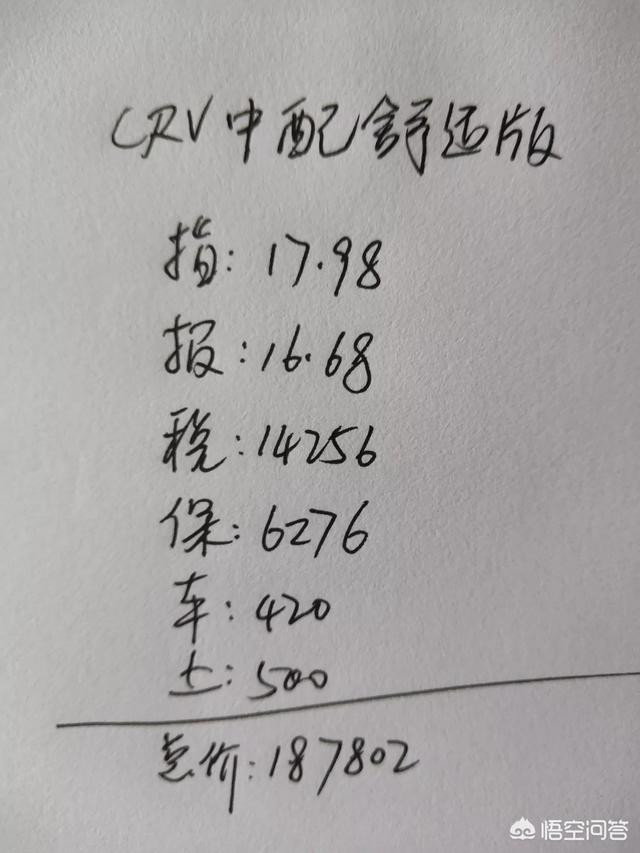 CRV中配舒适版
指:17.98
报:16.68
税:14256
保:6276
车:420
上:500
总价:187802
悟空问答